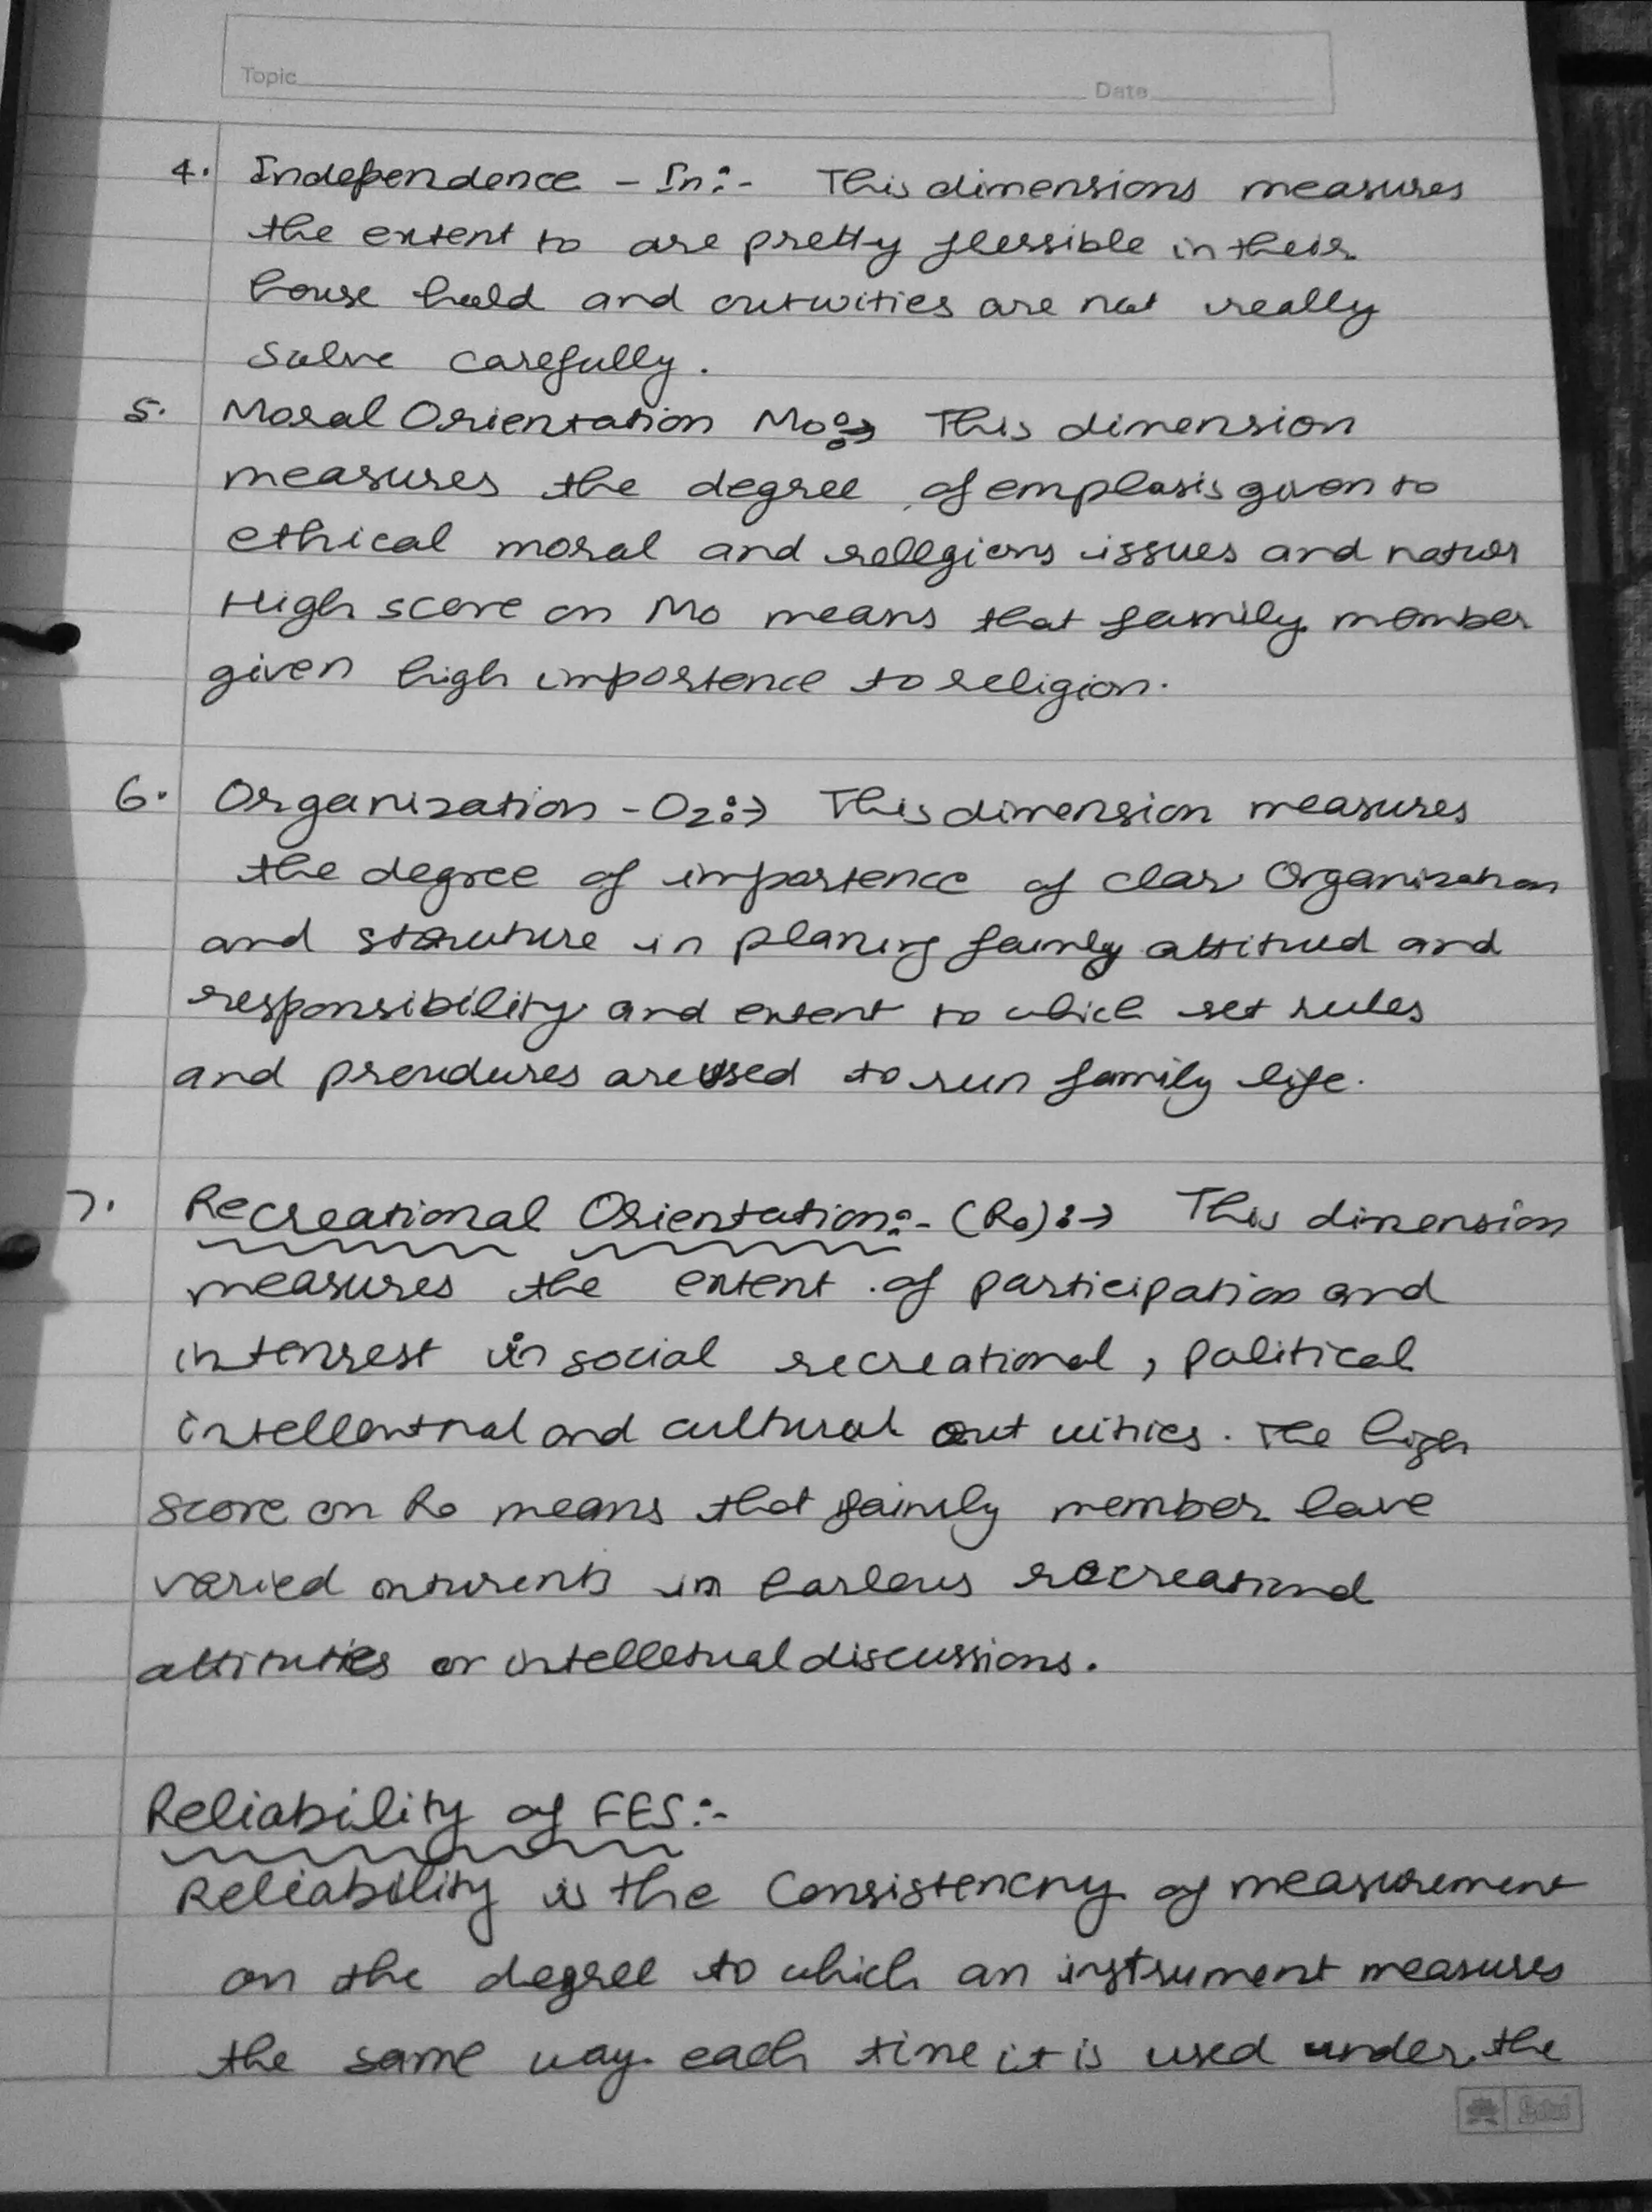 Topic Date
4. Independence - In:- This dimensions measures
the extent to are pretty flessible in their
house hold and outwities are not really
solve carefully.
5. Moral Orientation Mo:→ This dimension
measures the degree of emplasis given to
ethical moral and religions issues and
High score on Mo means that family member
given high importence to religion.
6. Organization - Oz:→ This dimension measures
the degree of importence of clar Organization
and in planing family attitud and
responsibility and extent to which set rules
and are used to run family life.
7. Recreational Orientation:- (Ro):→ This dimension
measures the extent of participation and
intenrest in social recreational, political
and cultural out uities. The high
score on Ro means that family member have
varied in recreational
or intelletual discussions.
Reliability of FES:-
Reliability is the Consistencny of measurement
on the degree to which an instrument measures
the same way each time it is used under the